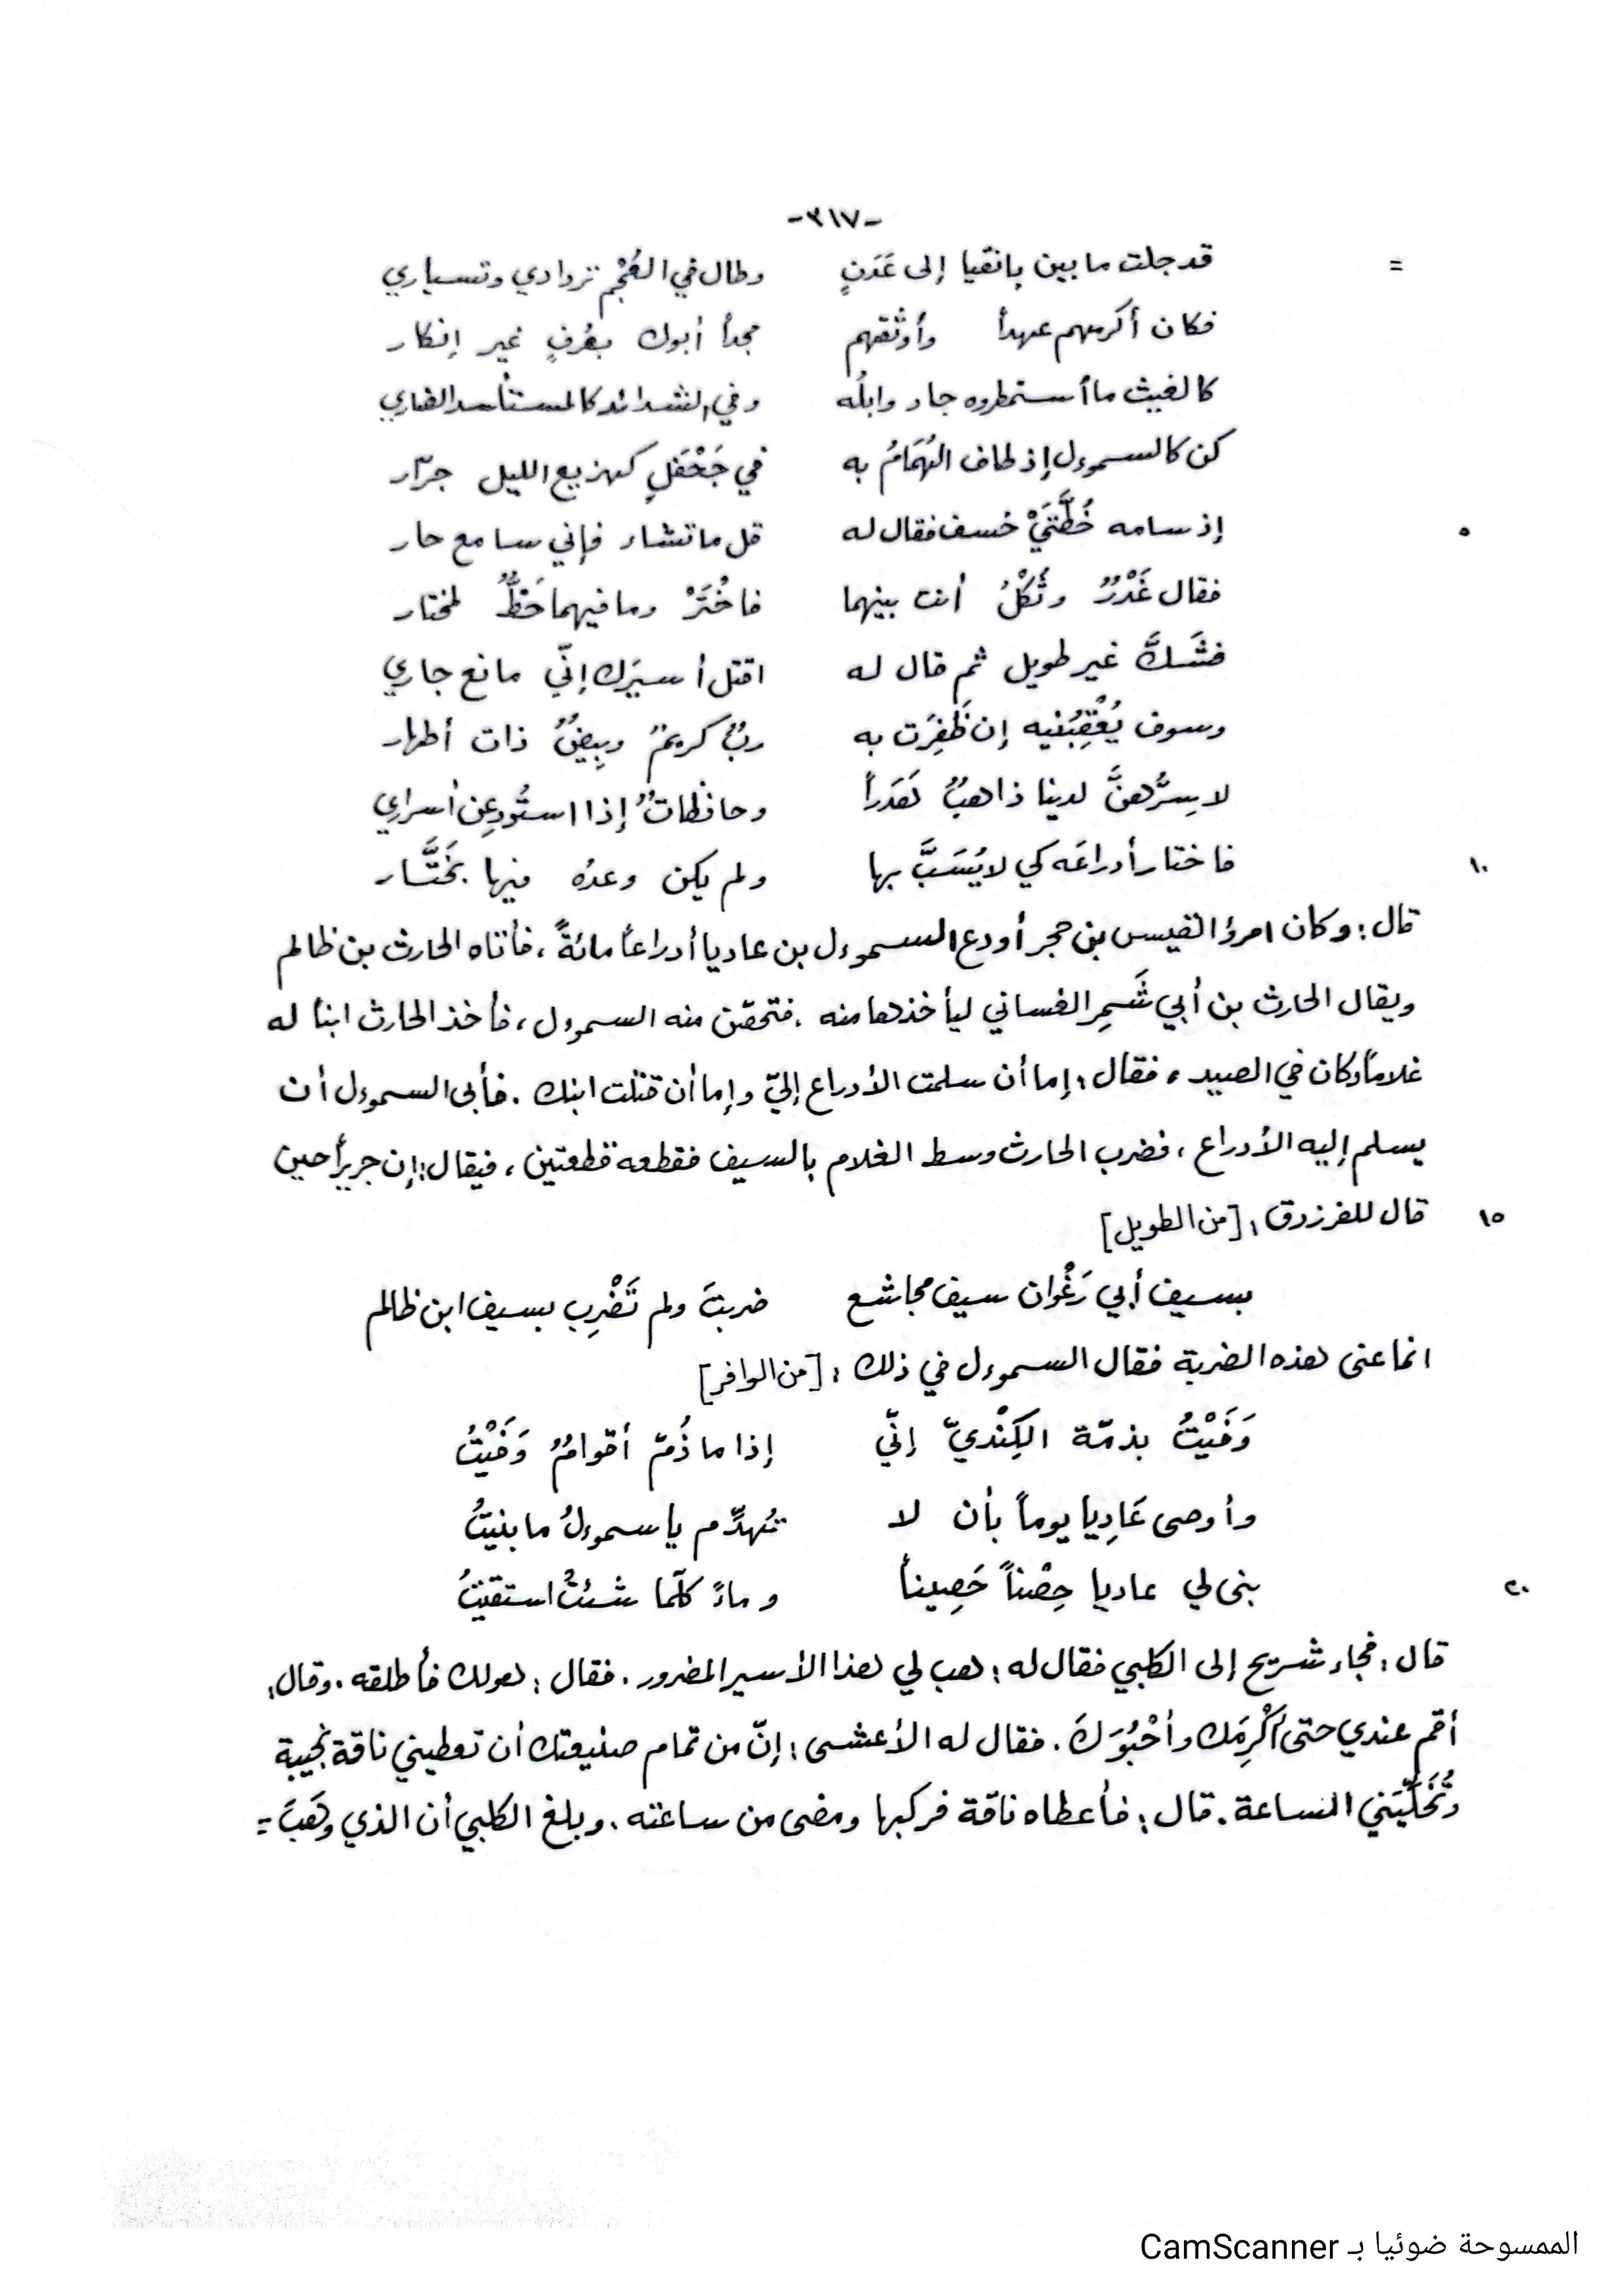 -٣١٧-
= قد جلت ما بين بانقيا إلى عَدَنٍ وطال في العُجْمِ تردادي وتسياري
فكان أكرمهم عهداً وأوثقهم مجداً أبوك بعُرفٍ غير إنكار
كالغيث ما أستمطروه جاد وابلُه وفي الشدائد كالمستأسد الضاري
كن كالسموءل إذ طاف الهُمَامُ به في جَحْفَلٍ كهزيع الليل جرّار
٥ إذ سامه خُطَّتَيْ خسف فقال له قل ما تشاء فإني سامع حار
فقال غَدْرٌ وثُكْلٌ أنت بينهما فاخْتَرْ وما فيهما حَظٌّ لمختار
فشَكَّ غير طويل ثم قال له اقتل أسيرَك إنّي مانع جاري
وسوف يُعْقِبُنيه إن ظَفِرَت به ربٌّ كريمٌ وبِيضٌ ذات أطهار
لا سِرُّهنَّ لدينا ذاهبٌ هَدَراً وحافظاتٌ إذا استُودِعِن أسراري
١٠ فاختار أدراعَه كي لا يُسَبَّ بها ولم يكن وعدُه فيها بخَتَّار
قال : وكان امرؤ القيس بن حجر أودع السموءل بن عاديا أدراعاً مائةً ، فأتاه الحارث بن ظالم
ويقال الحارث بن أبي شَمِر الغساني ليأخذها منه . فتحصّن منه السموءل ، فأخذ الحارث ابناً له
غلاماً وكان في الصيد ، فقال : إما أن سلمت الأدراع إليّ وإما أن قتلت ابنك . فأبى السموءل أن
يسلم إليه الأدراع ، فضرب الحارث وسط الغلام بالسيف فقطعه قطعتين ، فيقال : إن جريراً حين
١٥ قال للفرزدق : [من الطويل]
بسيف أبي رَغْوان سيف مجاشع ضربتَ ولم تَضْرِب بسيف ابن ظالم
انما عنى هذه الضربة فقال السموءل في ذلك : [من الوافر]
وَفَيْتُ بذمّة الكِنْديّ إنّي إذا ما ذُمّ أقوامٌ وَفَيْتُ
وأوصى عَادِيا يوماً بأن لا تُهدِّم يا سموءلُ ما بنيتُ
٢٠ بنى لي عاديا حِصْناً حَصِيناً وماءً كلّما شئتُ استقيتُ
قال : فجاء شريح إلى الكلبي فقال له : هب لي هذا الأسير المضرور . فقال : هو لك فأطلقه . وقال :
أقم عندي حتى أكْرِمَك وأحْبُوَكَ . فقال له الأعشى : إنّ من تمام صنيعتك أن تعطيني ناقة نجيبة
وتُخَلِّيَني الساعة . قال : فأعطاه ناقة فركبها ومضى من ساعته . وبلغ الكلبي أن الذي وهَبَ =
الممسوحة ضوئيا بـ CamScanner